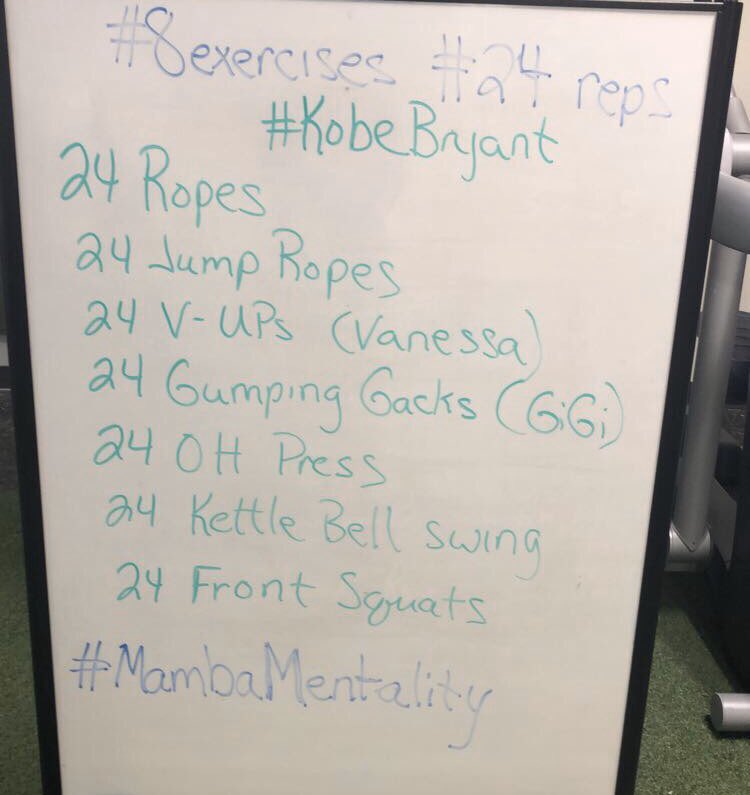 #8exercises #24 reps
#KobeBryant
24 Ropes
24 Jump Ropes
24 V-UPs (Vanessa)
24 Gumping Gacks (GiGi)
24 OH Press
24 Kettle Bell swing
24 Front Squats
#MambaMentality